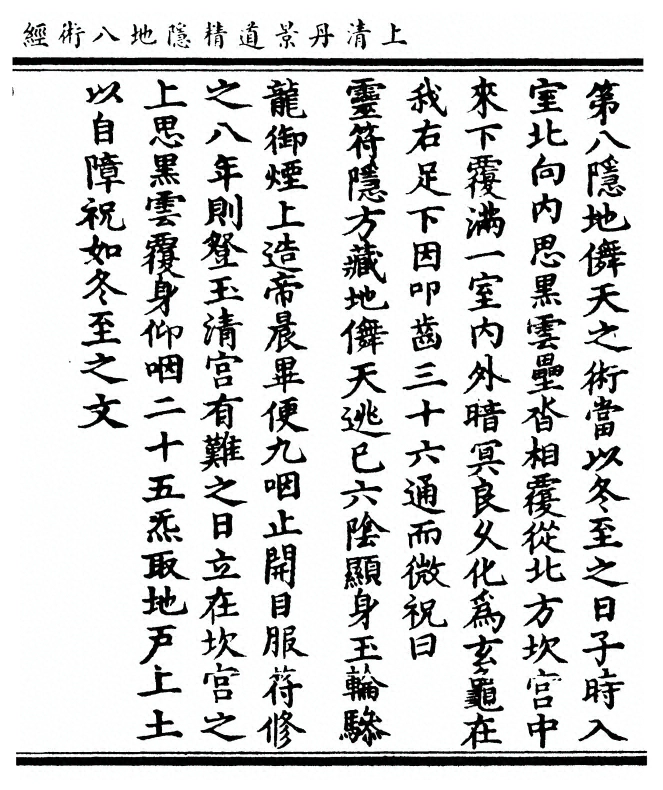 上清丹景道精隱地八術經
第八隱地儛天之術當以冬至之日子時入
室北向內思黑雲壘沓相覆從北方坎宮中
來下覆滿一室內外暗冥良久化為玄龜在
我右足下因叩齒三十六通而微祝曰
靈符隱方藏地儛天逃巳六陰顯身玉輪驂
龍御煙上造帝晨畢便九咽止開目服符修
之八年則登玉清宮有難之日立在坎宮之
上思黑雲覆身仰咽二十五炁取地戶上土
以自障祝如冬至之文